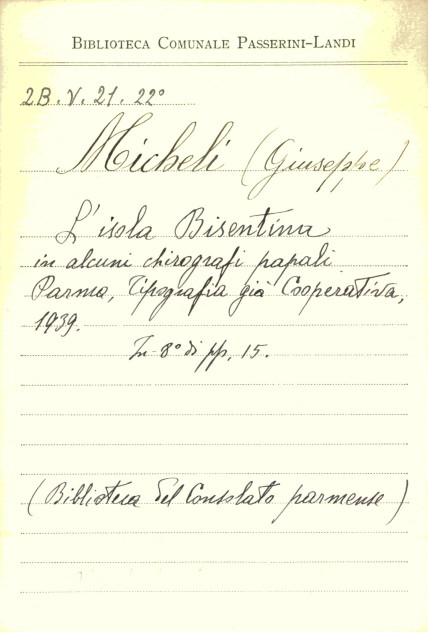 BIBLIOTECA COMUNALE PASSERINI-LANDI
2B.V.21.22°
Micheli (Giuseppe)
L'isola Bisentina
in alcuni chirografi papali.
Parma, Tipografia già Cooperativa,
1939.
In 8° di pp. 15.
(Biblioteca del Consolato parmense)